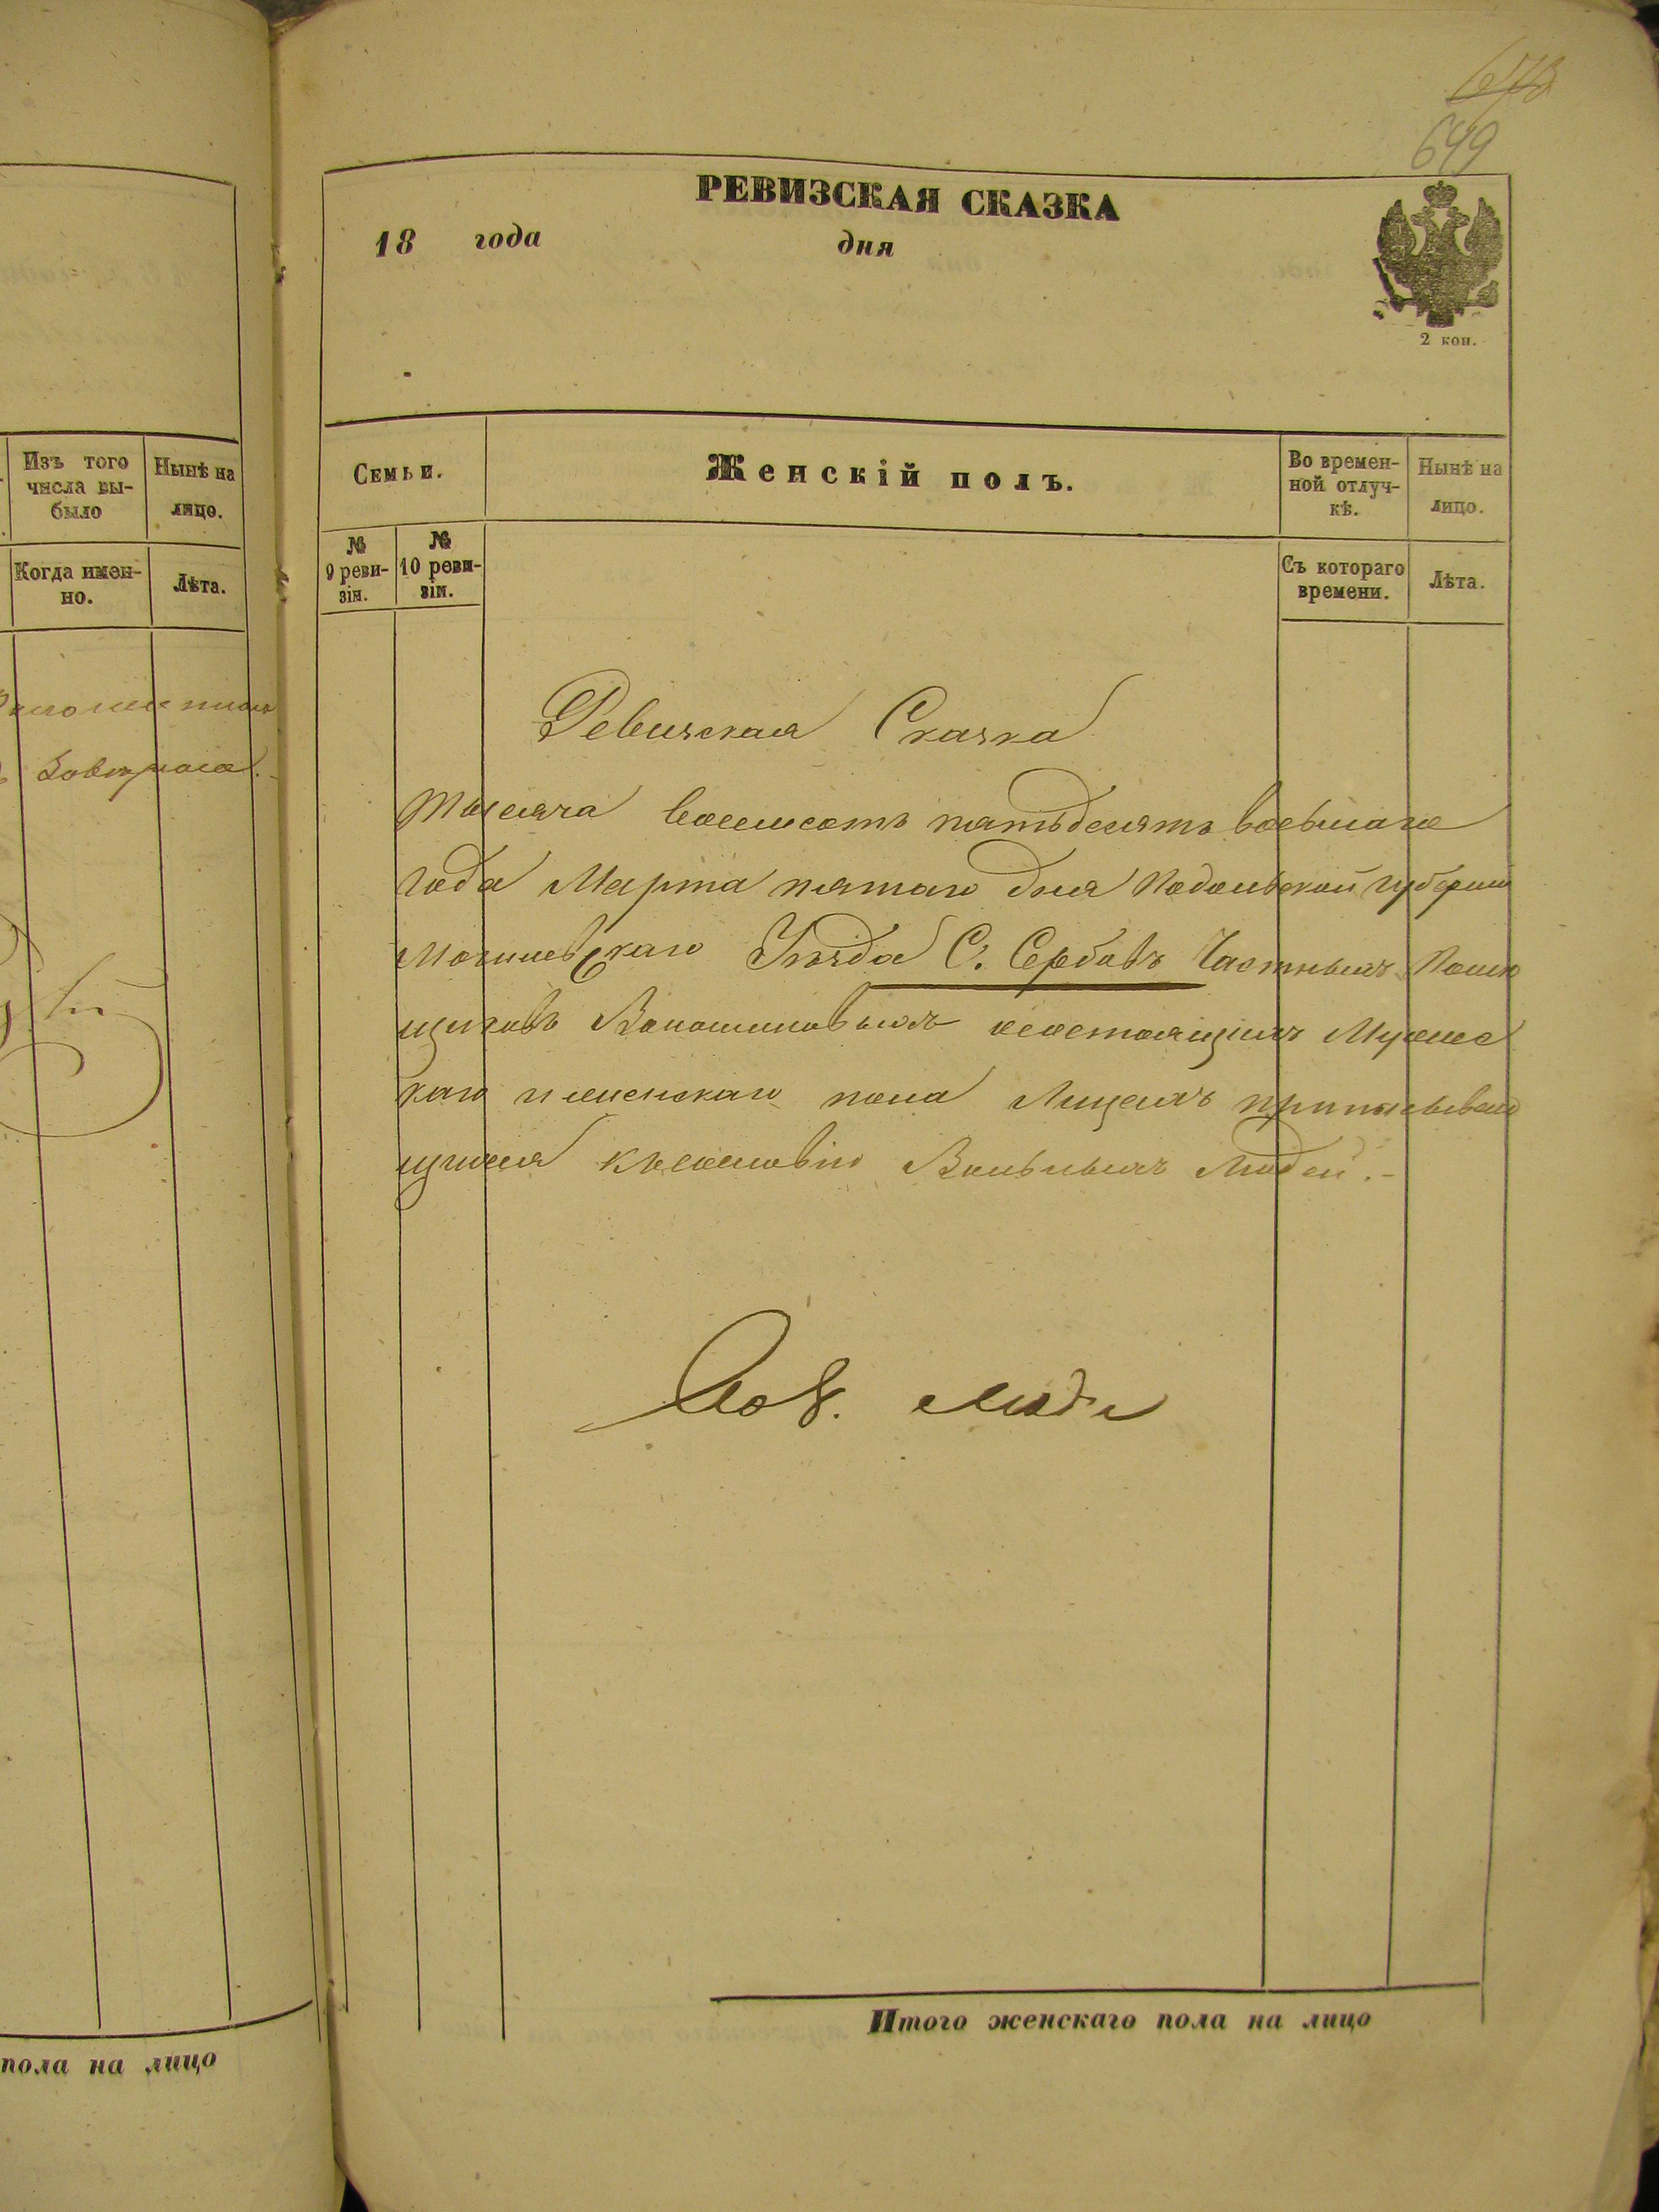 649
РЕВИЗСКАЯ СКАЗКА
18 года дня
2 коп.
Изъ того числа вы-
было
Нынѣ на
лицо.
Когда имен-
но.
Лѣта.
Семьи.
Женскій полъ.
Во времен-
ной отлуч-
кѣ.
Нынѣ на
лицо.
№
9 реви-
зіи.
№
10 реви-
зіи.
Съ котораго
времени.
Лѣта.
Ревизская Сказка
Тысяча восемсотъ пятьдесятъ восьмаго
года Марта пятаго дня Подольской губерніи
Могилевскаго Уѣзда С. Сербовъ Частныхъ Помѣ
щиковъ состоящихъ Мужес
каго и женскаго пола Лицахъ приписываю
щихся къ сословію Вольныхъ Людей.-
люди
Итого женскаго пола на лицо
пола на лицо